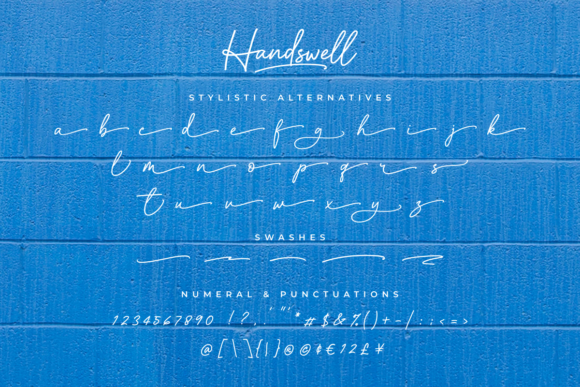 Handswell
STYLISTIC ALTERNATIVES
a b c d e f g h i j k
l m n o p q r s
t u v w x y z
SWASHES
NUMERAL & PUNCTUATIONS
1 2 3 4 5 6 7 8 9 0 ! ? . , ' " " * # $ & % ( ) + - / : ; < = >
@ [ \ ] { | }